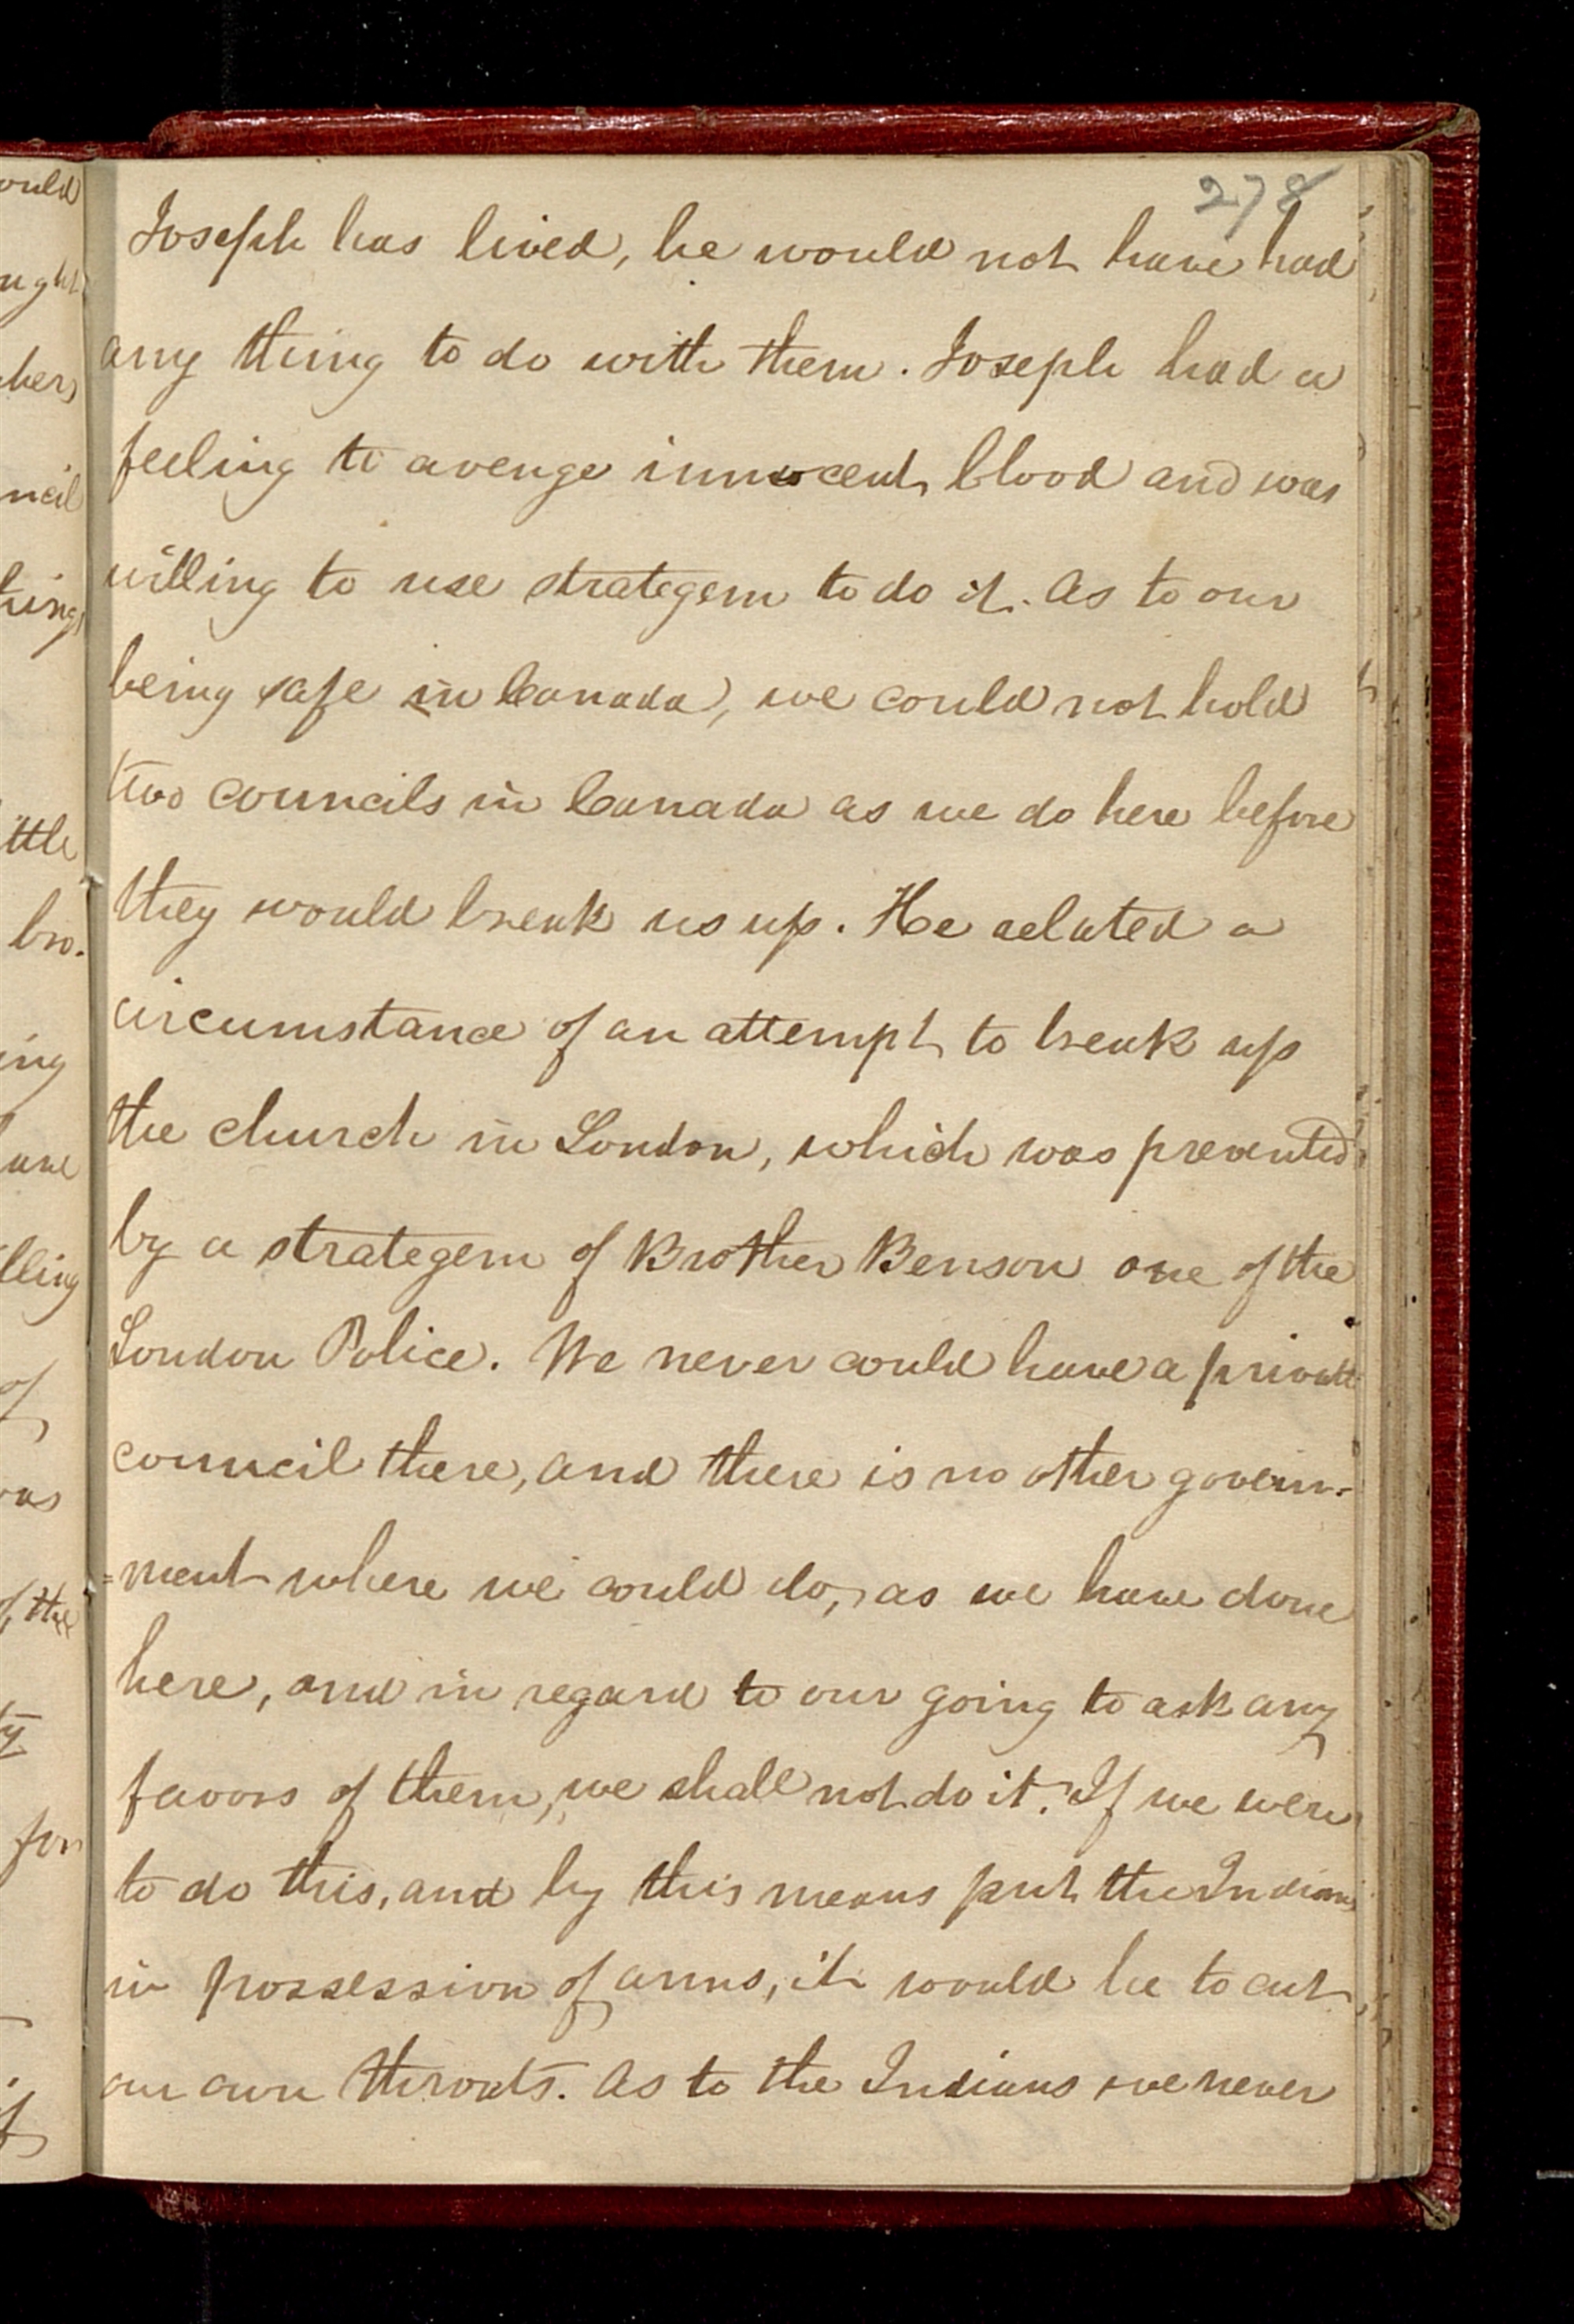 278
Joseph has lived, he would not have had
any thing to do with them. Joseph had a
feeling to avenge innocent blood and was
willing to use strategem to do it. As to our
being safe in Canada, we could not hold
two councils in Canada as we do here before
they would break us up. He related a
circumstance of an attempt to break up
the church in London, which was prevented
by a strategem of Brother Benson one of the
London Police. We never could have a private
council there, and there is no other govern-
=ment where we could do, as we have done
here, and in regard to our going to ask any
favors of them, we shall not do it. If we were
to do this, and by this means put the Indians
in possession of arms, it would be to cut
our own throats. As to the Indians we never